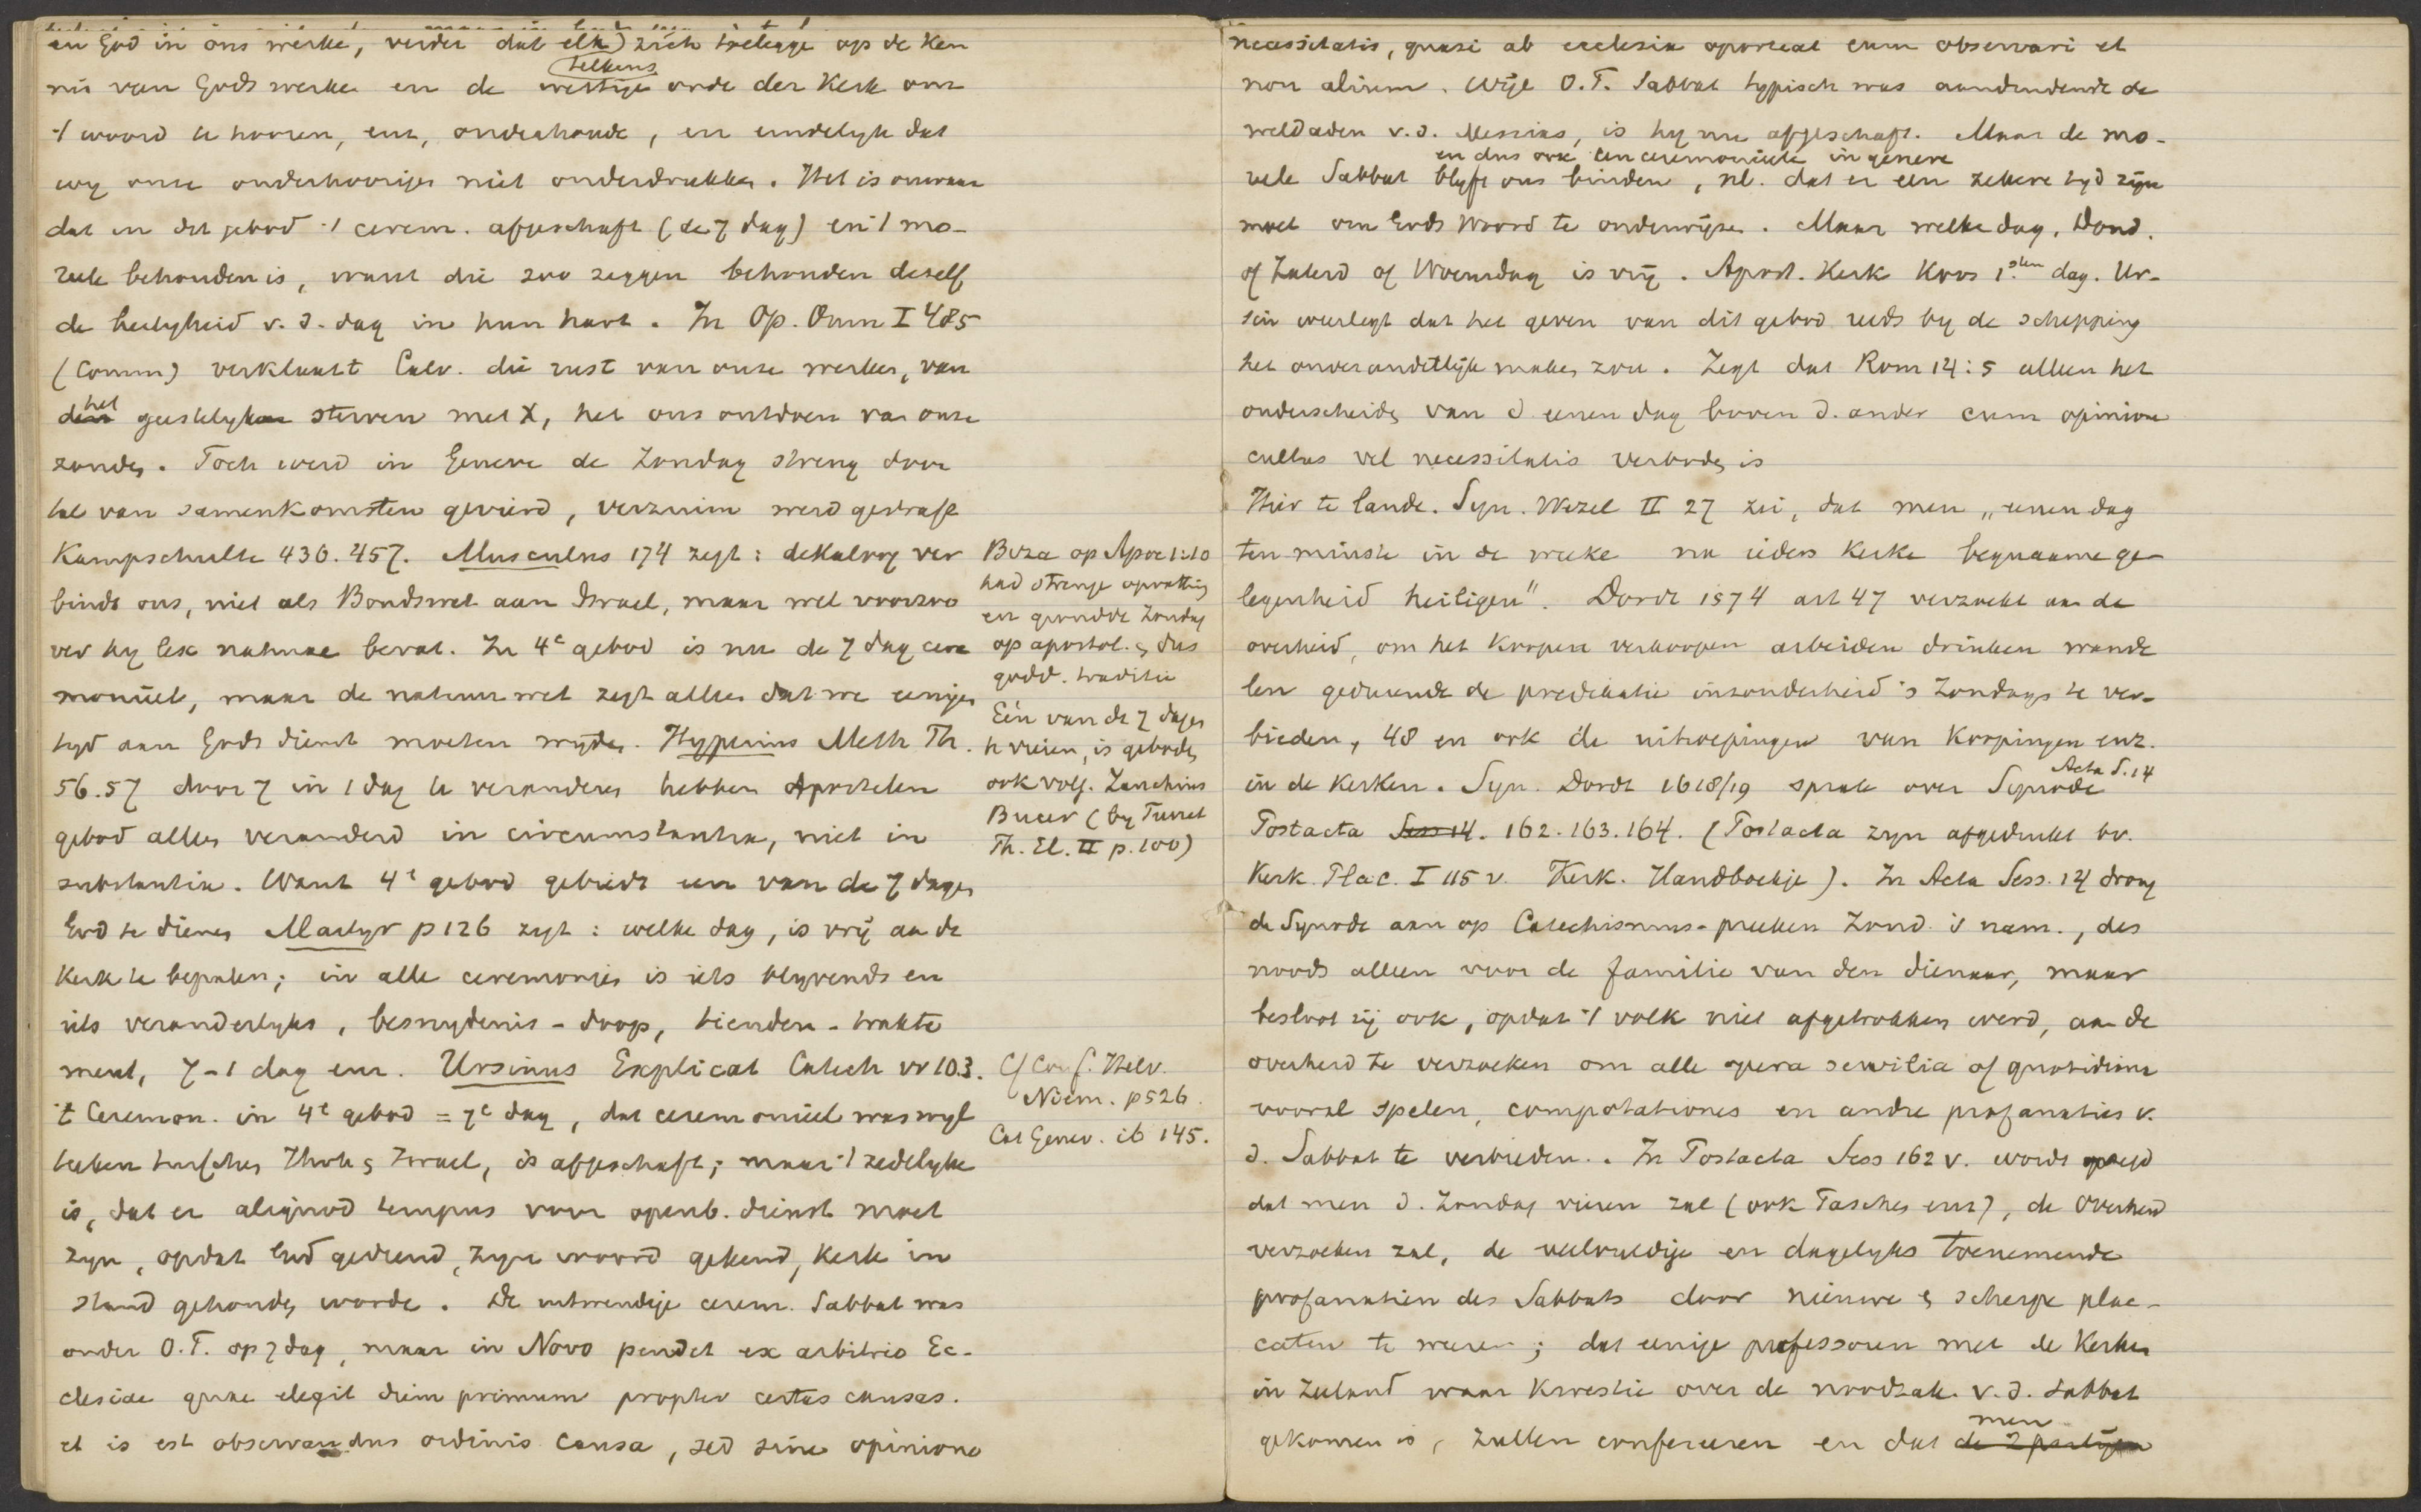 en God in ons werke, verder dat elk) zich toelegge op de ken
telkens
nis van Gods werken en de wettige orde der Kerk om
't woord te hooren, enz, onderhoude, en eindelyk dat
wy onze onderhoorigen niet onderdrukken. Het is onwaar
dat in dit gebod 't cerem. afgeschaft (de 7 dag) en 't mo-
reele behouden is, want die zoo zeggen behouden dezelf
de heiligheid v. d. dag in hun hart. In Op. Omn I 485
(Comm) verklaart Calv. die rust van onze werken, van
het
den geestelyken sterven met X, het ons ontdoen van onze
zonden. Toch werd in Geneve de Zondag streng door
tal van samenkomsten gevierd, verzuim werd gestraft
Kampschulte 436. 457. Musculus 174 zegt: dekaloog ver
bindt ons, niet als Bondswet aan Israel, maar wel voorzoo
ver hy lex naturae bevat. In 4e gebod is nu de 7 dag cere
monieel, maar de natuurwet zegt alleen dat we eenigen
tyd aan Gods dienst moeten wyden. Hyperius Meth Th.
56.57 door 7 in 1 dag te veranderen hebben Apostelen
gebod alleen veranderd in circumstantia, niet in
substantia. Want 4e gebod gebiedt een van de 7 dagen
God te dienen Martyr p 126 zegt: welke dag, is vrij aan de
Kerk te bepalen; in alle ceremonies is iets blyvends en
iets veranderlyks, besnydenis - doop, tienden - trakte
ment, 7-1 dag enz. Ursinus Explicat Catech vr 103.
't Ceremon. in 4e gebod = 7e dag, dat ceremonieel was wyl
teeken tusschen Jhvh & Israel, is afgeschaft; maar 't zedelyke
is, dat er aliquod tempus voor openb. dienst moet
zyn, opdat God gediend, zyn woord gekend, Kerk in
stand gehouden worde. De uitwendige cerem. Sabbat was
onder O.T. op 7 dag, maar in Novo pendet ex arbitrio Ec-
clesiae quae elegit diem primum propter certas causas.
et is est observandus ordinis causa, sed sine opinione
Beza op Apoc 1:10
had strenge opvatting
en grondde Zondag
op apostol. & dus
godd. traditie
Eén van de 7 dagen
te vieren, is geboden
ook volg. Zanchius
Bucer (by Turret
Th. El. II p. 100)
Cf Conf. Helv.
Niem. p 526.
Cat Genev. ib 145.
necessitatis, quasi ab ecclesia oporteat eum observari et
non alium. Wijl O.T. Sabbat typisch was aanduidende de
weldaden v.d. Messias, is hy nu afgeschaft. Maar de mo-
en dus ook een ceremonieele in genere
reele Sabbat blyft ons binden, nl. dat er een zekere tyd zyn
moet om Gods Woord te onderwijzen. Maar welke dag, Dond.
of Zaterd of Woensdag is vrij. Apost. Kerk Koos 1sten dag. Ur-
sin weerlegt dat het geven van dit gebod reeds by de schepping
het onveranderlijk maken zou. Zegt dat Rom 14:5 alleen het
onderscheiden van d eenen dag boven d. ander cum opinione
cultus vel necessitatis verboden is
Hier te lande. Syn. Wezel II 27 zei, dat men „eenen dag
ten minste in de weeke na ieders Kerke bequaame ge-
legenheid heiligen". Dordr 1574 art 47 verzoekt aan de
overheid, om het Koopen verkoopen arbeiden drinken wande
len gedurende de predikatie inzonderheid 's Zondags te ver-
bieden, 48 en ook de uitroepingen van Koopingen enz.
Acta S. 14
in de Kerken. Syn. Dordt 1618/19 sprak over Synode
Postacta Sess 14. 162. 163. 164. (Postacta zyn afgedrukt bv.
Kerk. Plac. I 115 v. Kerk. Handboekje). In Acta Sess. 14 drong
de Synode aan op Catechismus-preeken Zond. 's nam., des
noods alleen voor de familie van den dienaar, maar
besloot zij ook, opdat 't volk niet afgetrokken werd, aan de
overheid te verzoeken om alle opera servilia of quotidiana
vooral spelen, compotationes en andre profanaties v.
d. Sabbat te verbieden. In Postacta Sess 162 v. wordt gezegd
dat men d. Zondag vieren zal (ook Paschen enz), de Overheid
verzoeken zal, de veelvuldige en dagelyks toenemende
profanatien des Sabbats door nieuwe & scherpe plac-
caten te weren; dat eenige professoren met de Kerken
in Zeeland waar Kwestie over de noodzak. v. d. Sabbat
men
gekomen is, zullen confereeren en dat de 2 partijen